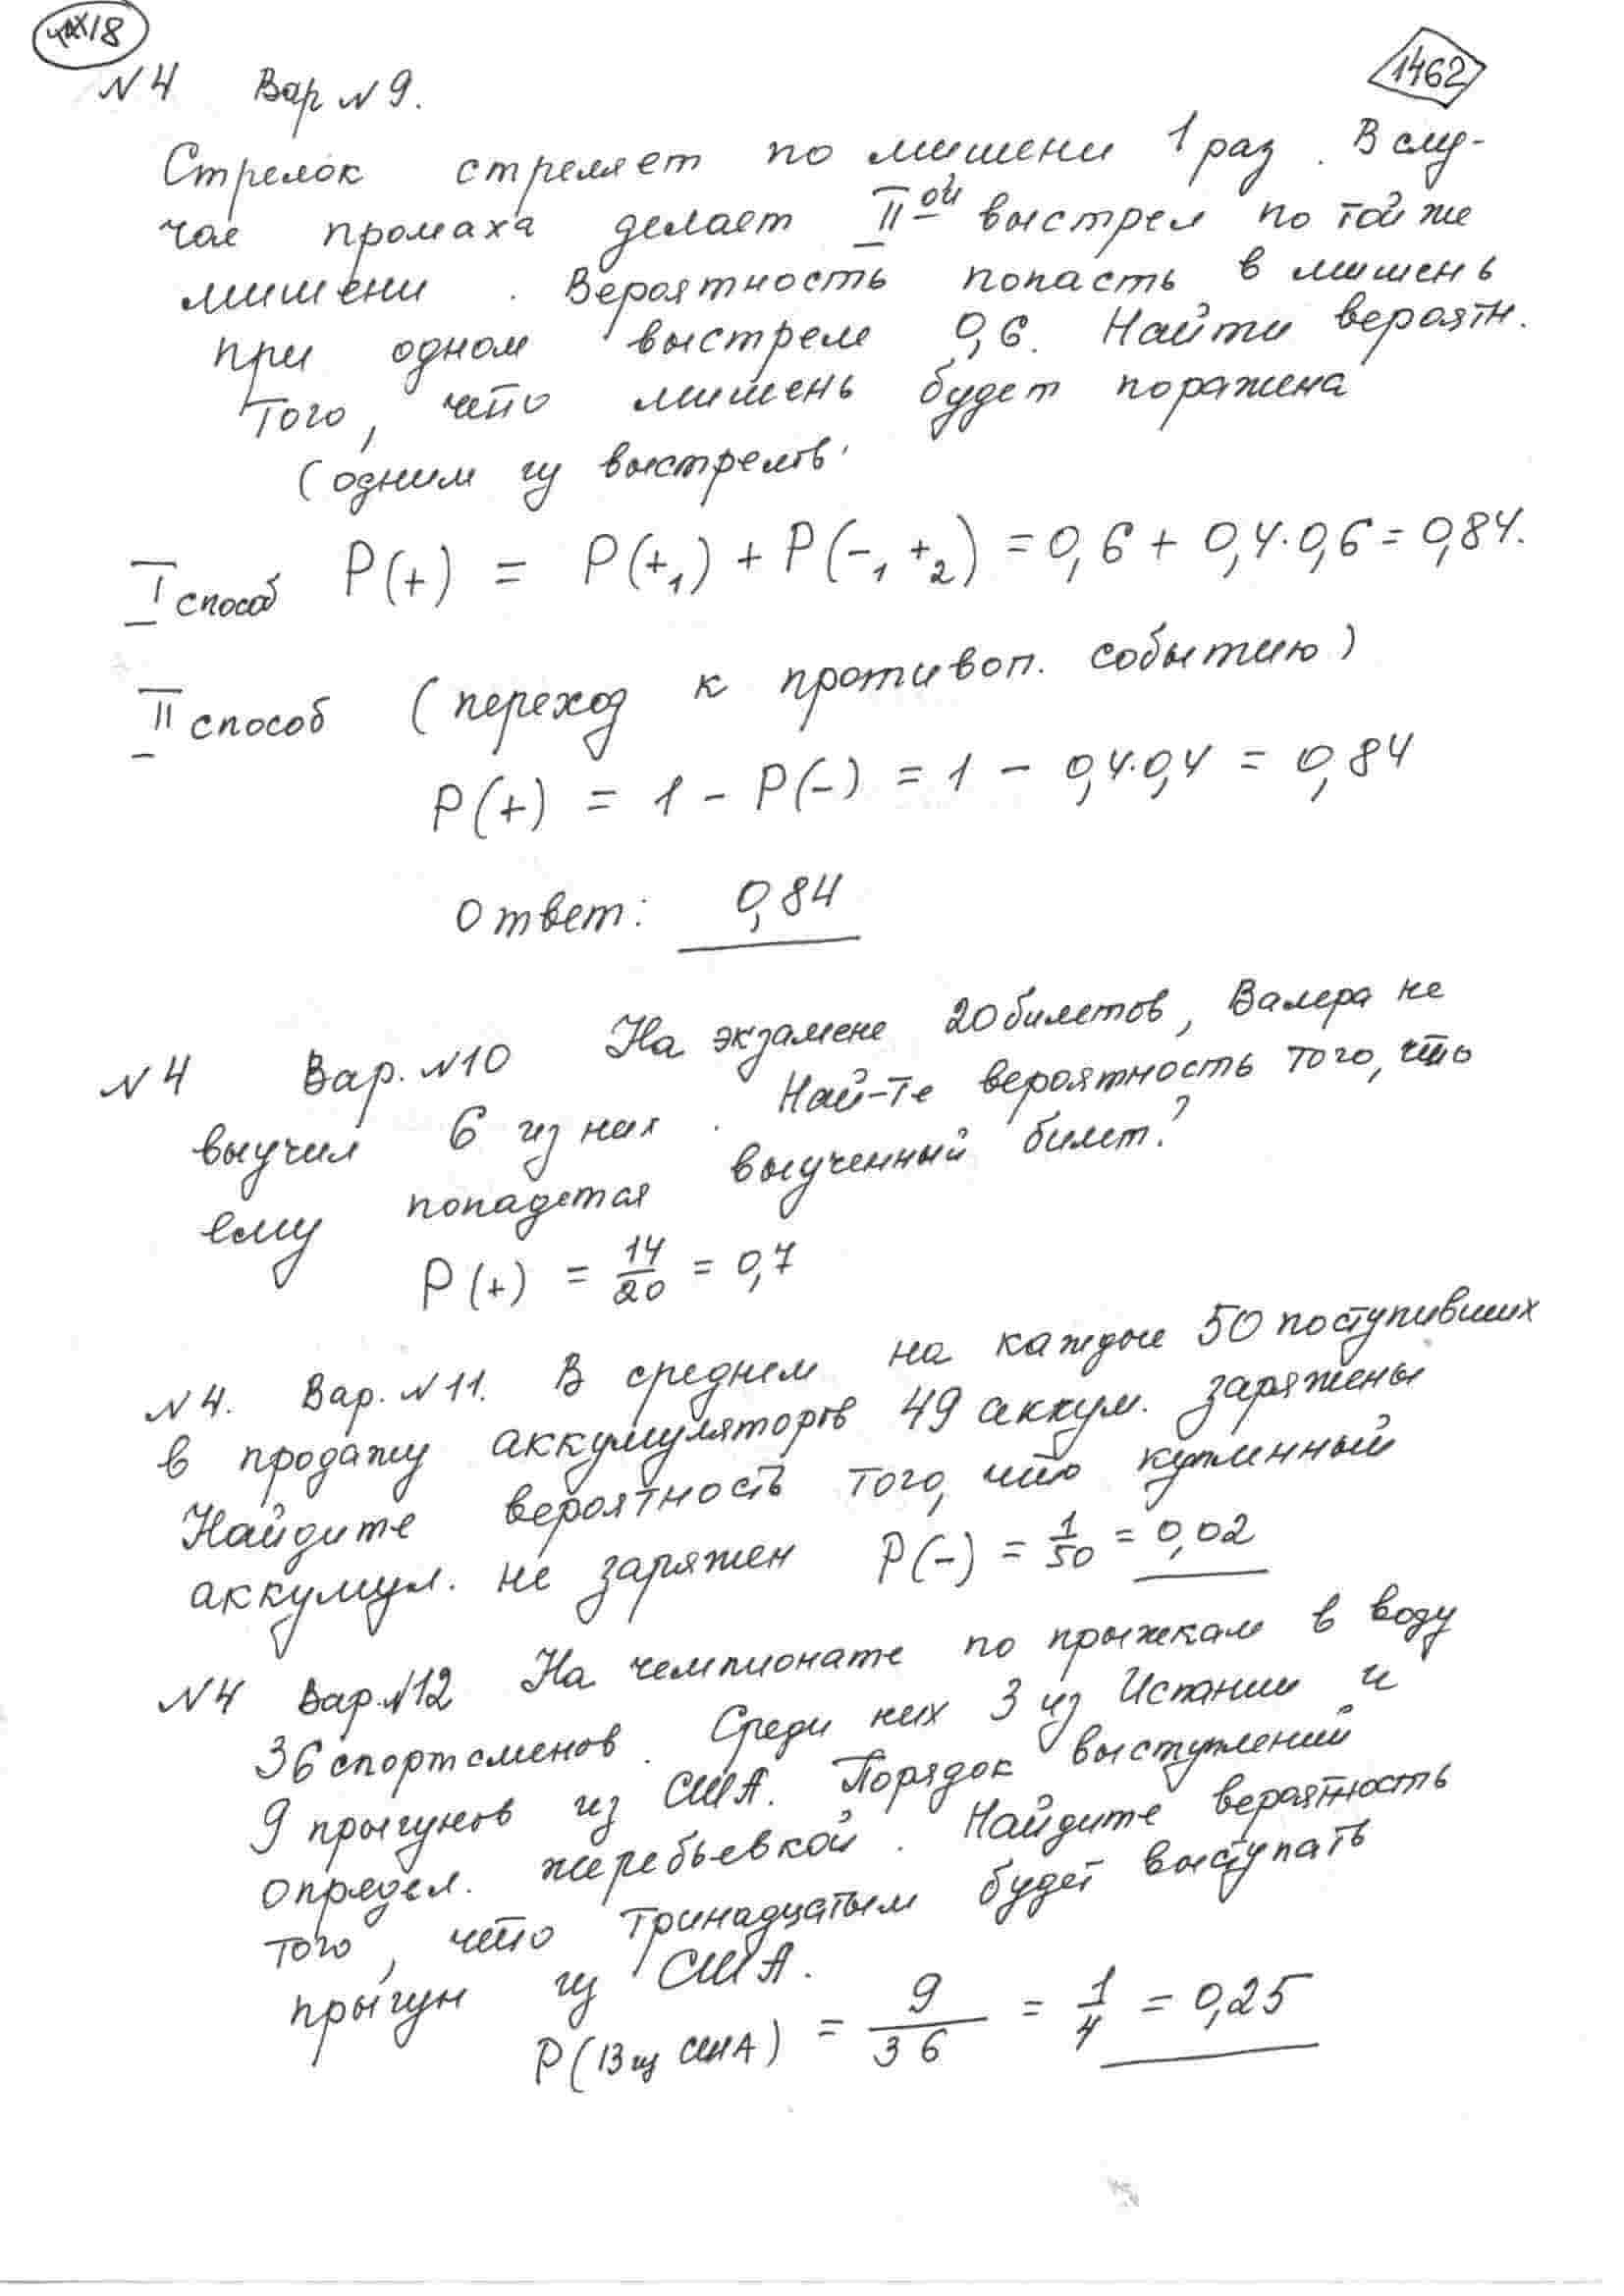 18
1462
N4 Вар N9.
Стрелок стреляет по мишени 1 раз. В слу-
чае промаха делает II ой выстрел по той же
мишени. Вероятность попасть в мишень
при одном выстреле 0,6. Найти вероятн.
того, что мишень будет поражена
(одним из выстрелов
I способ P(+) = P(+₁) + P(-₁ +₂) = 0,6 + 0,4·0,6 = 0,84.
II способ (переход к противоп. событию)
P(+) = 1 - P(-) = 1 - 0,4·0,4 = 0,84
Ответ: 0,84
N4 Вар. N10 На экзамене 20 билетов, Валера не
выучил 6 из них. Най-те вероятность того, что
ему попадется выученный билет?
P(+) = 14/20 = 0,7
N4. Вар. N11. В среднем на каждые 50 поступивших
в продажу аккумуляторов 49 аккум. заряжены
Найдите вероятность того, что купленный
аккумул. не заряжен P(-) = 1/50 = 0,02
N4 Вар.N12 На чемпионате по прыжкам в воду
36 спортсменов. Среди них 3 из Испании и
9 прыгунов из США. Порядок выступлений
определ. жеребьевкой. Найдите вероятность
того, что тринадцатым будет выступать
прыгун из США.
P(13 из США) = 9/36 = 1/4 = 0,25